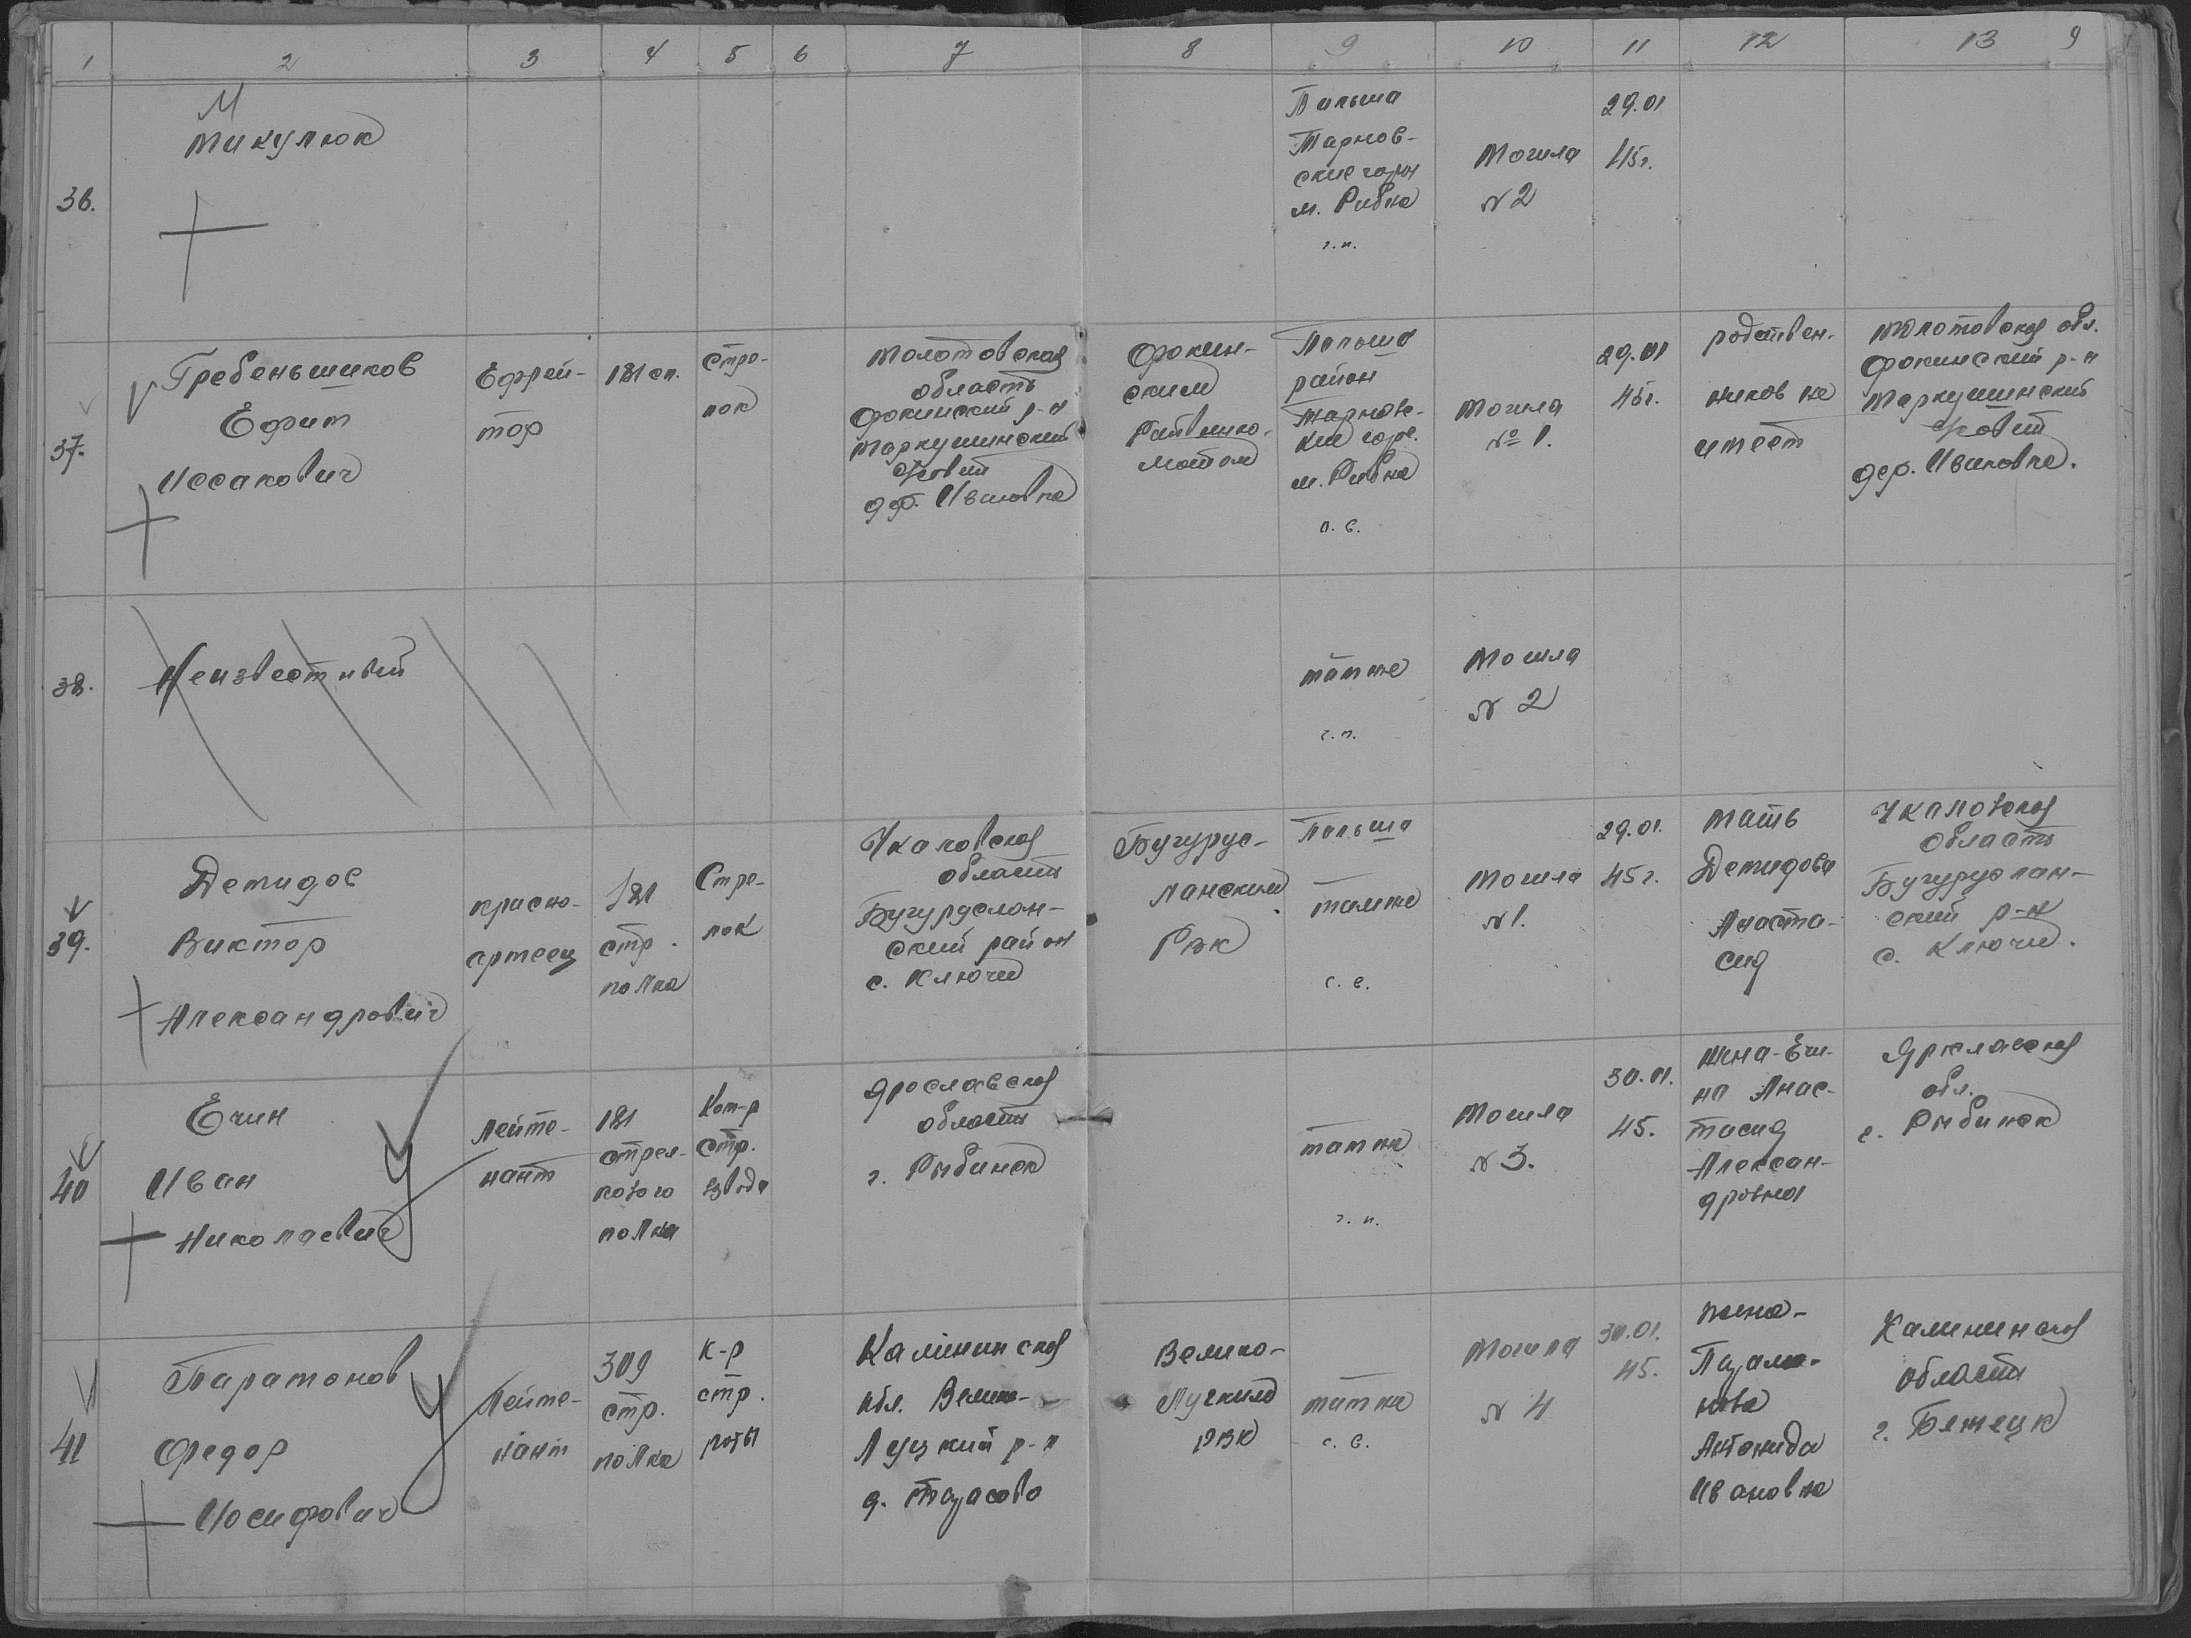 1 2 3 4 5 6 7 8 9 10 11 12 13 9
36.
М
Микулюк
Польша
Тарнов-
ские горы
м. Рибна
г.п.
Могила
№2
29.01
45г.
37.
Гребеньщиков
Ефим
Иссакович
Ефрей-
тор
181 сп.
стре-
лок
Молотовская
область
Фокинский р-н
Маркушинский
дер. Ивановка
Фокин-
ским
Райвоенко-
матом
Польша
район
Тарновс-
кие горы
м. Рибна
п. с.
Могила
№ 1.
29.01
45г.
родствен-
ников не
имеет
Молотовская обл.
Фокинский р-н
Маркушинский
дер. Ивановка.
38.
Неизвестный
там же
г.п.
Могила
№ 2
39.
Демидов
Виктор
Александрович
красно-
армеец
181
стр.
полка
Стре-
лок
Чкаловская
область
Бугуруслан-
ский район
с. Ключи
Бугурус-
ланский
РВК
Польша
там же
с. в.
Могила
№1.
29.01.
45г.
Мать
Демидова
Анаста-
сия
Чкаловская
область
Бугуруслан-
ский р-н
с. Ключи.
40
Ечин
Иван
Николаевич
Лейте-
нант
181
стрел-
кового
полка
Ком-р
стр.
взвода
Ярославская
область
г. Рыбинск
там же
г. п.
Могила
№ 3.
30.01.
45.
жена-Ечи-
на Анас-
тасия
Александ-
ровна
Ярославская
обл.
г. Рыбинск
41
Парамонов
Федор
Иосифович
Лейте-
нант
309
стр.
полка
к-р
стр.
роты
Калининская
обл. Велико-
Луцкий р-н
Велико-
Лукский
РВК
там же
с. в.
Могила
№ 4
30.01.
45.
жена-
Парамо-
нова
Антонида
Ивановна
Калининская
область
г. Бежецк